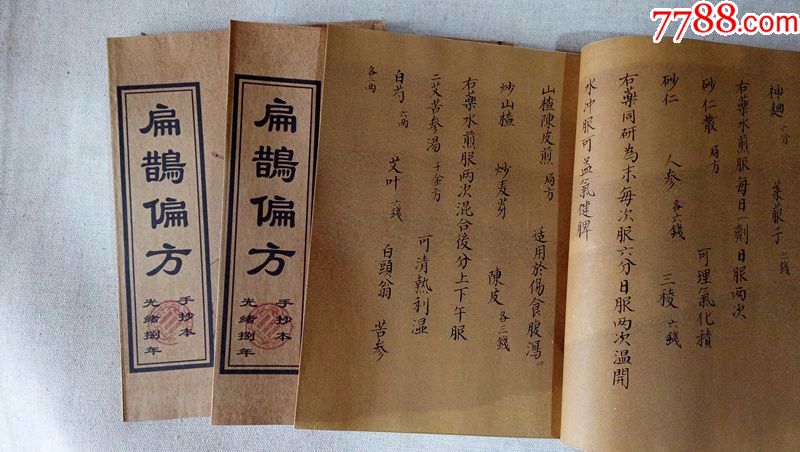 7788.com
神麯 六分 萊菔子 二錢
右藥水煎服每日一劑日服兩次
砂仁散 局方 可理氣化積
砂仁 人参 各六錢 三稜 六錢
右藥同研為末每次服六分日服两次温開
水冲服可益氣健脾
山楂陳皮煎 局方 适用於傷食腹瀉
炒山楂 炒麦芽 陳皮 各三錢
右藥水煎服兩次混合後分上下午服
二艾苦参湯 千金方 可清熱利湿
白芍 六两 艾叶 六錢 白頭翁 苦参
扁鵲偏方
手抄本
光緒捌年
扁鵲偏方
手抄本
光緒捌年